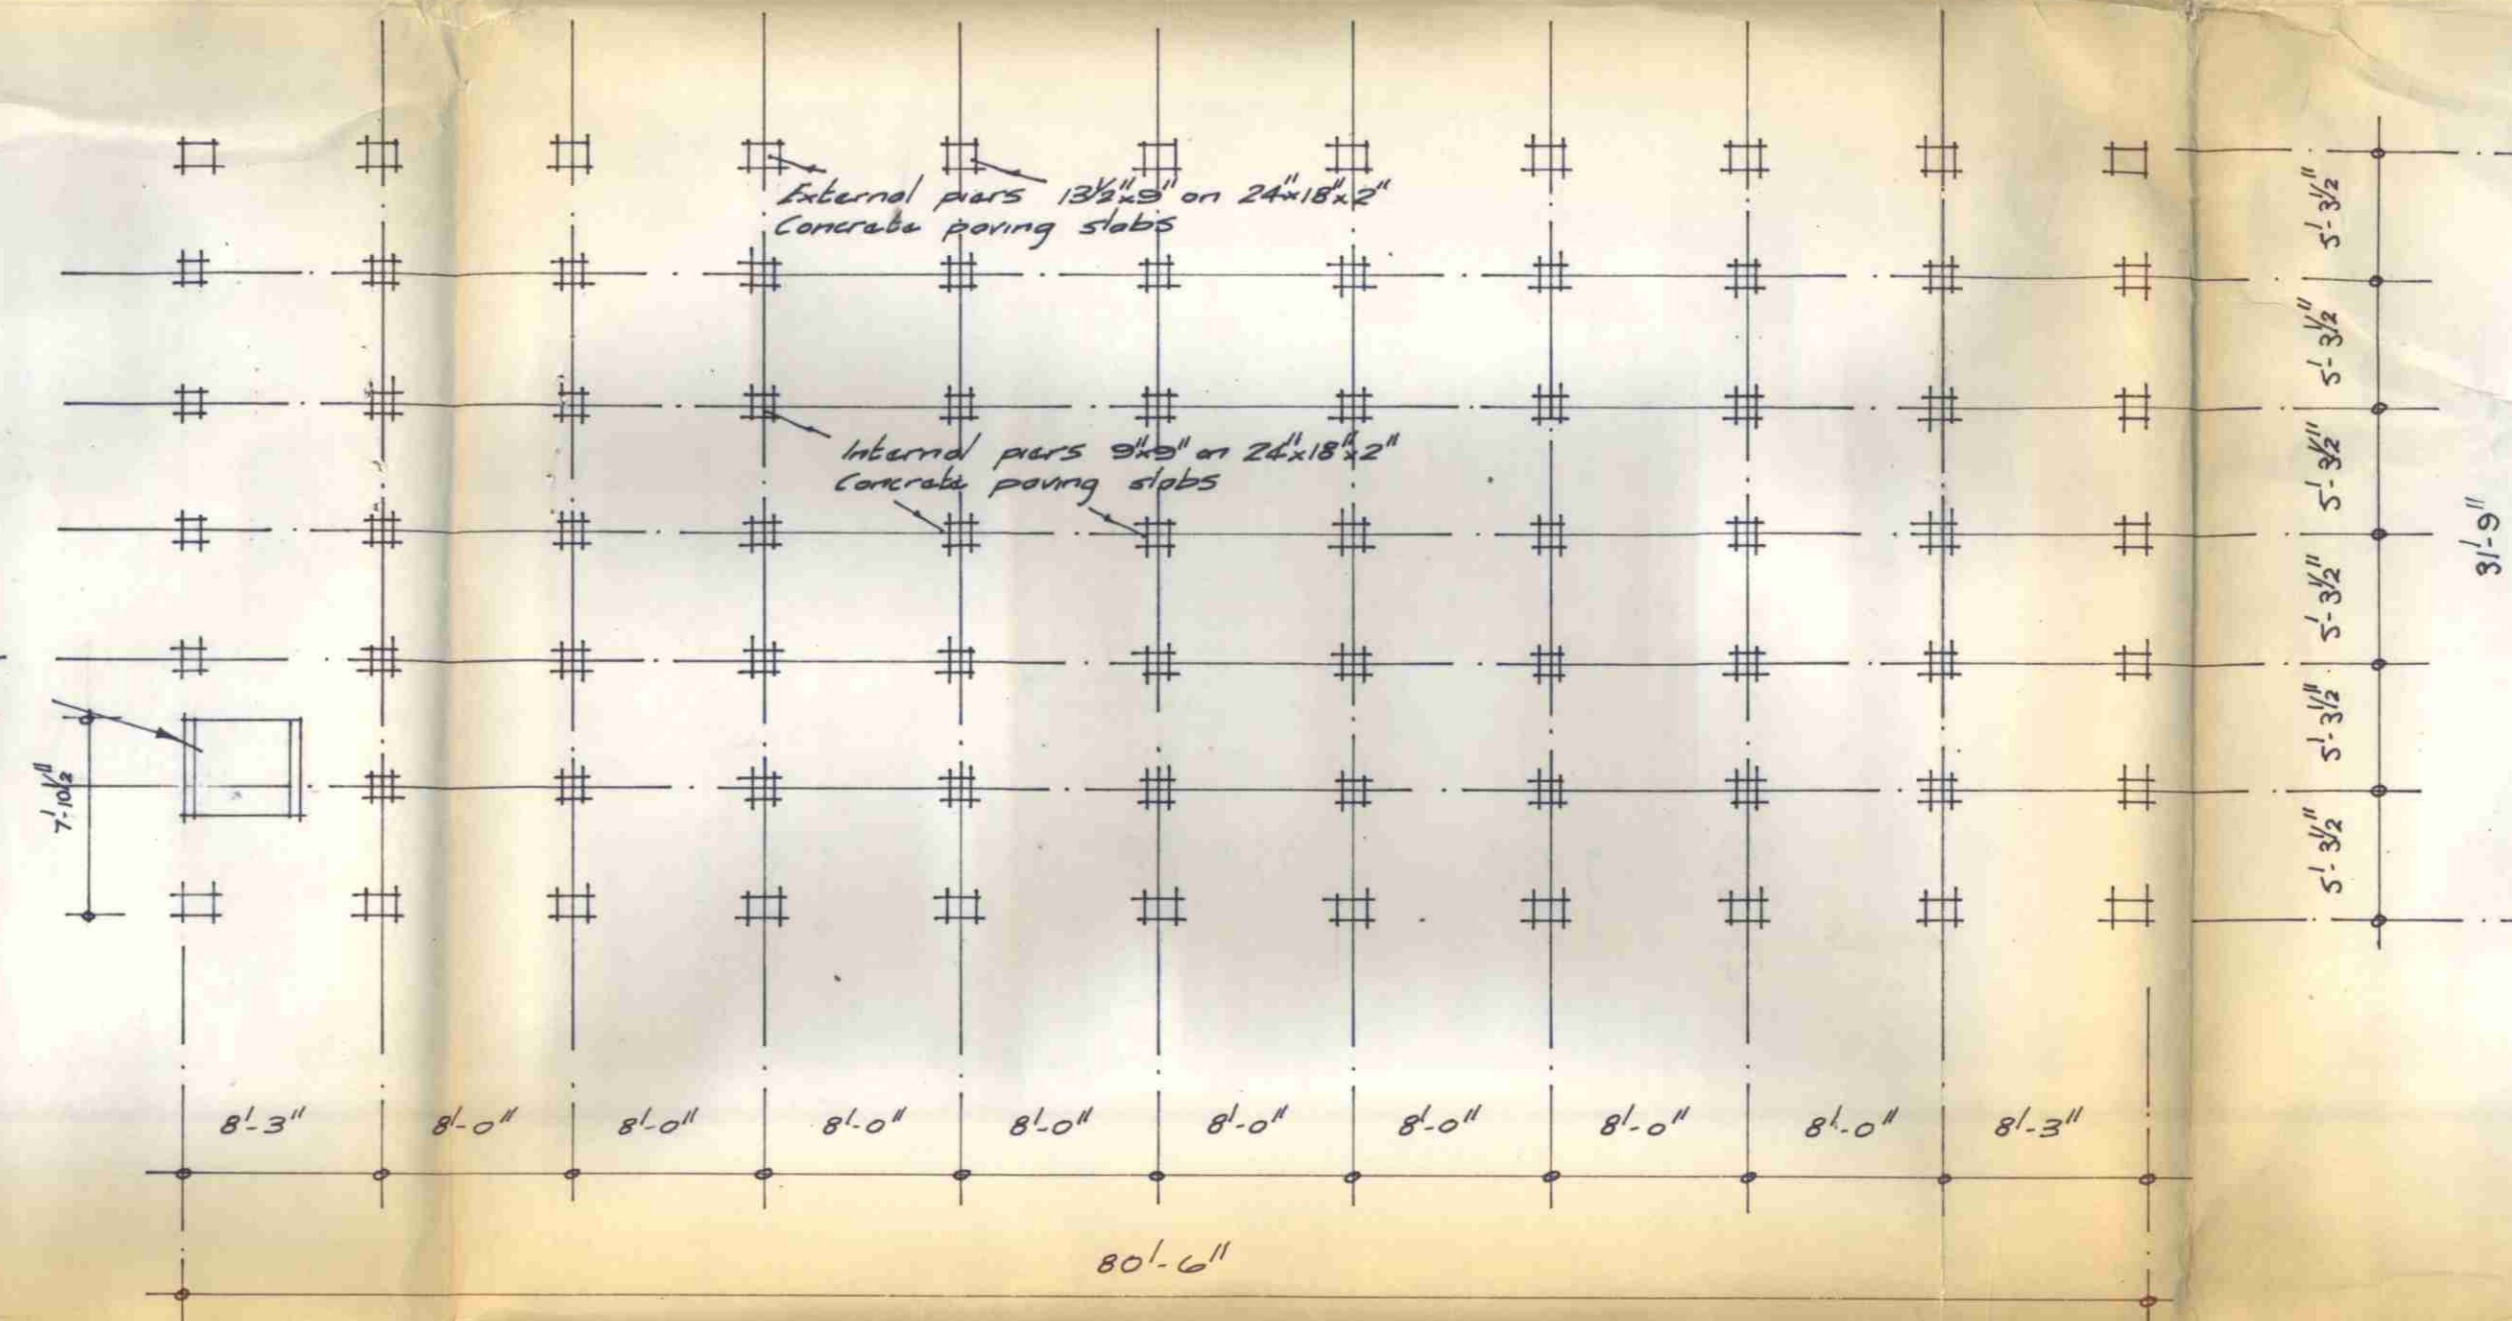 External piers 13½"x9" on 24"x18"x2"
Concrete paving slabs
Internal piers 9"x9" on 24"x18"x2"
Concrete paving slabs
5'-3½"
5'-3½"
5'-3½"
5'-3½"
5'-3½"
5'-3½"
31'-9"
7'-10½"
8'-3" 8'-0" 8'-0" 8'-0" 8'-0" 8'-0" 8'-0" 8'-0" 8'-0" 8'-3"
80'-6"